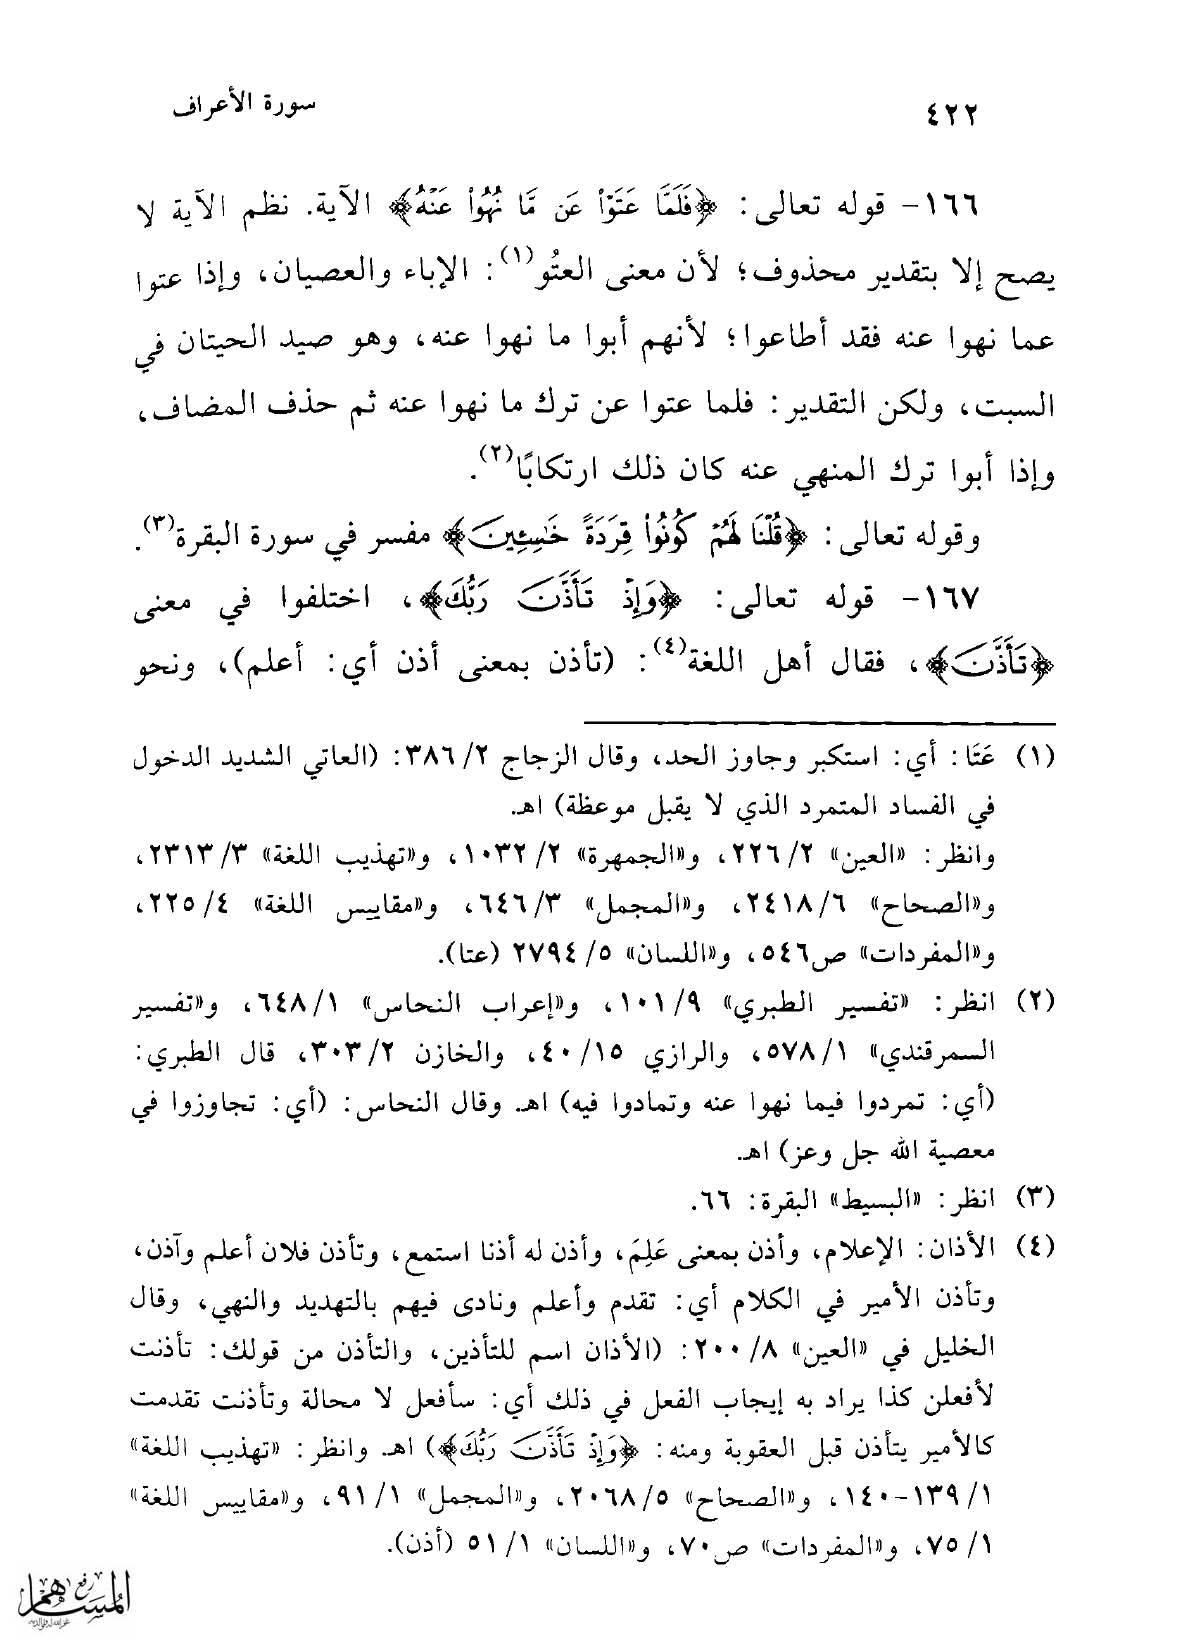 ٤٢٢
سورة الأعراف
١٦٦- قوله تعالى: ﴿فَلَمَّا عَتَوْا۟ عَن مَّا نُهُوا۟ عَنْهُ﴾ الآية. نظم الآية لا
يصح إلا بتقدير محذوف؛ لأن معنى العتُو(١): الإباء والعصيان، وإذا عتوا
عما نهوا عنه فقد أطاعوا؛ لأنهم أبوا ما نهوا عنه، وهو صيد الحيتان في
السبت، ولكن التقدير: فلما عتوا عن ترك ما نهوا عنه ثم حذف المضاف،
وإذا أبوا ترك المنهي عنه كان ذلك ارتكابًا(٢).
وقوله تعالى: ﴿قُلْنَا لَهُمْ كُونُوا۟ قِرَدَةً خَـٰسِـِٔينَ﴾ مفسر في سورة البقرة(٣).
١٦٧- قوله تعالى: ﴿وَإِذْ تَأَذَّنَ رَبُّكَ﴾، اختلفوا في معنى
﴿تَأَذَّنَ﴾، فقال أهل اللغة(٤): (تأذن بمعنى أذن أي: أعلم)، ونحو
(١) عَتَا: أي: استكبر وجاوز الحد، وقال الزجاج ٢/ ٣٨٦: (العاتي الشديد الدخول
في الفساد المتمرد الذي لا يقبل موعظة) اهـ.
وانظر: «العين» ٢/ ٢٢٦، و«الجمهرة» ٢/ ١٠٣٢، و«تهذيب اللغة» ٣/ ٢٣١٣،
و«الصحاح» ٦/ ٢٤١٨، و«المجمل» ٣/ ٦٤٦، و«مقاييس اللغة» ٤/ ٢٢٥،
و«المفردات» ص٥٤٦، و«اللسان» ٥/ ٢٧٩٤ (عتا).
(٢) انظر: «تفسير الطبري» ٩/ ١٠١، و«إعراب النحاس» ١/ ٦٤٨، و«تفسير
السمرقندي» ١/ ٥٧٨، والرازي ١٥/ ٤٠، والخازن ٢/ ٣٠٣، قال الطبري:
(أي: تمردوا فيما نهوا عنه وتمادوا فيه) اهـ. وقال النحاس: (أي: تجاوزوا في
معصية الله جل وعز) اهـ.
(٣) انظر: «البسيط» البقرة: ٦٦.
(٤) الأذان: الإعلام، وأذن بمعنى عَلِمَ، وأذن له أذنا استمع، وتأذن فلان أعلم وآذن،
وتأذن الأمير في الكلام أي: تقدم وأعلم ونادى فيهم بالتهديد والنهي، وقال
الخليل في «العين» ٨/ ٢٠٠: (الأذان اسم للتأذين، والتأذن من قولك: تأذنت
لأفعلن كذا يراد به إيجاب الفعل في ذلك أي: سأفعل لا محالة وتأذنت تقدمت
كالأمير يتأذن قبل العقوبة ومنه: ﴿وَإِذْ تَأَذَّنَ رَبُّكَ﴾) اهـ. وانظر: «تهذيب اللغة»
١/ ١٣٩-١٤٠، و«الصحاح» ٥/ ٢٠٦٨، و«المجمل» ١/ ٩١، و«مقاييس اللغة»
١/ ٧٥، و«المفردات» ص٧٠، و«اللسان» ١/ ٥١ (أذن).